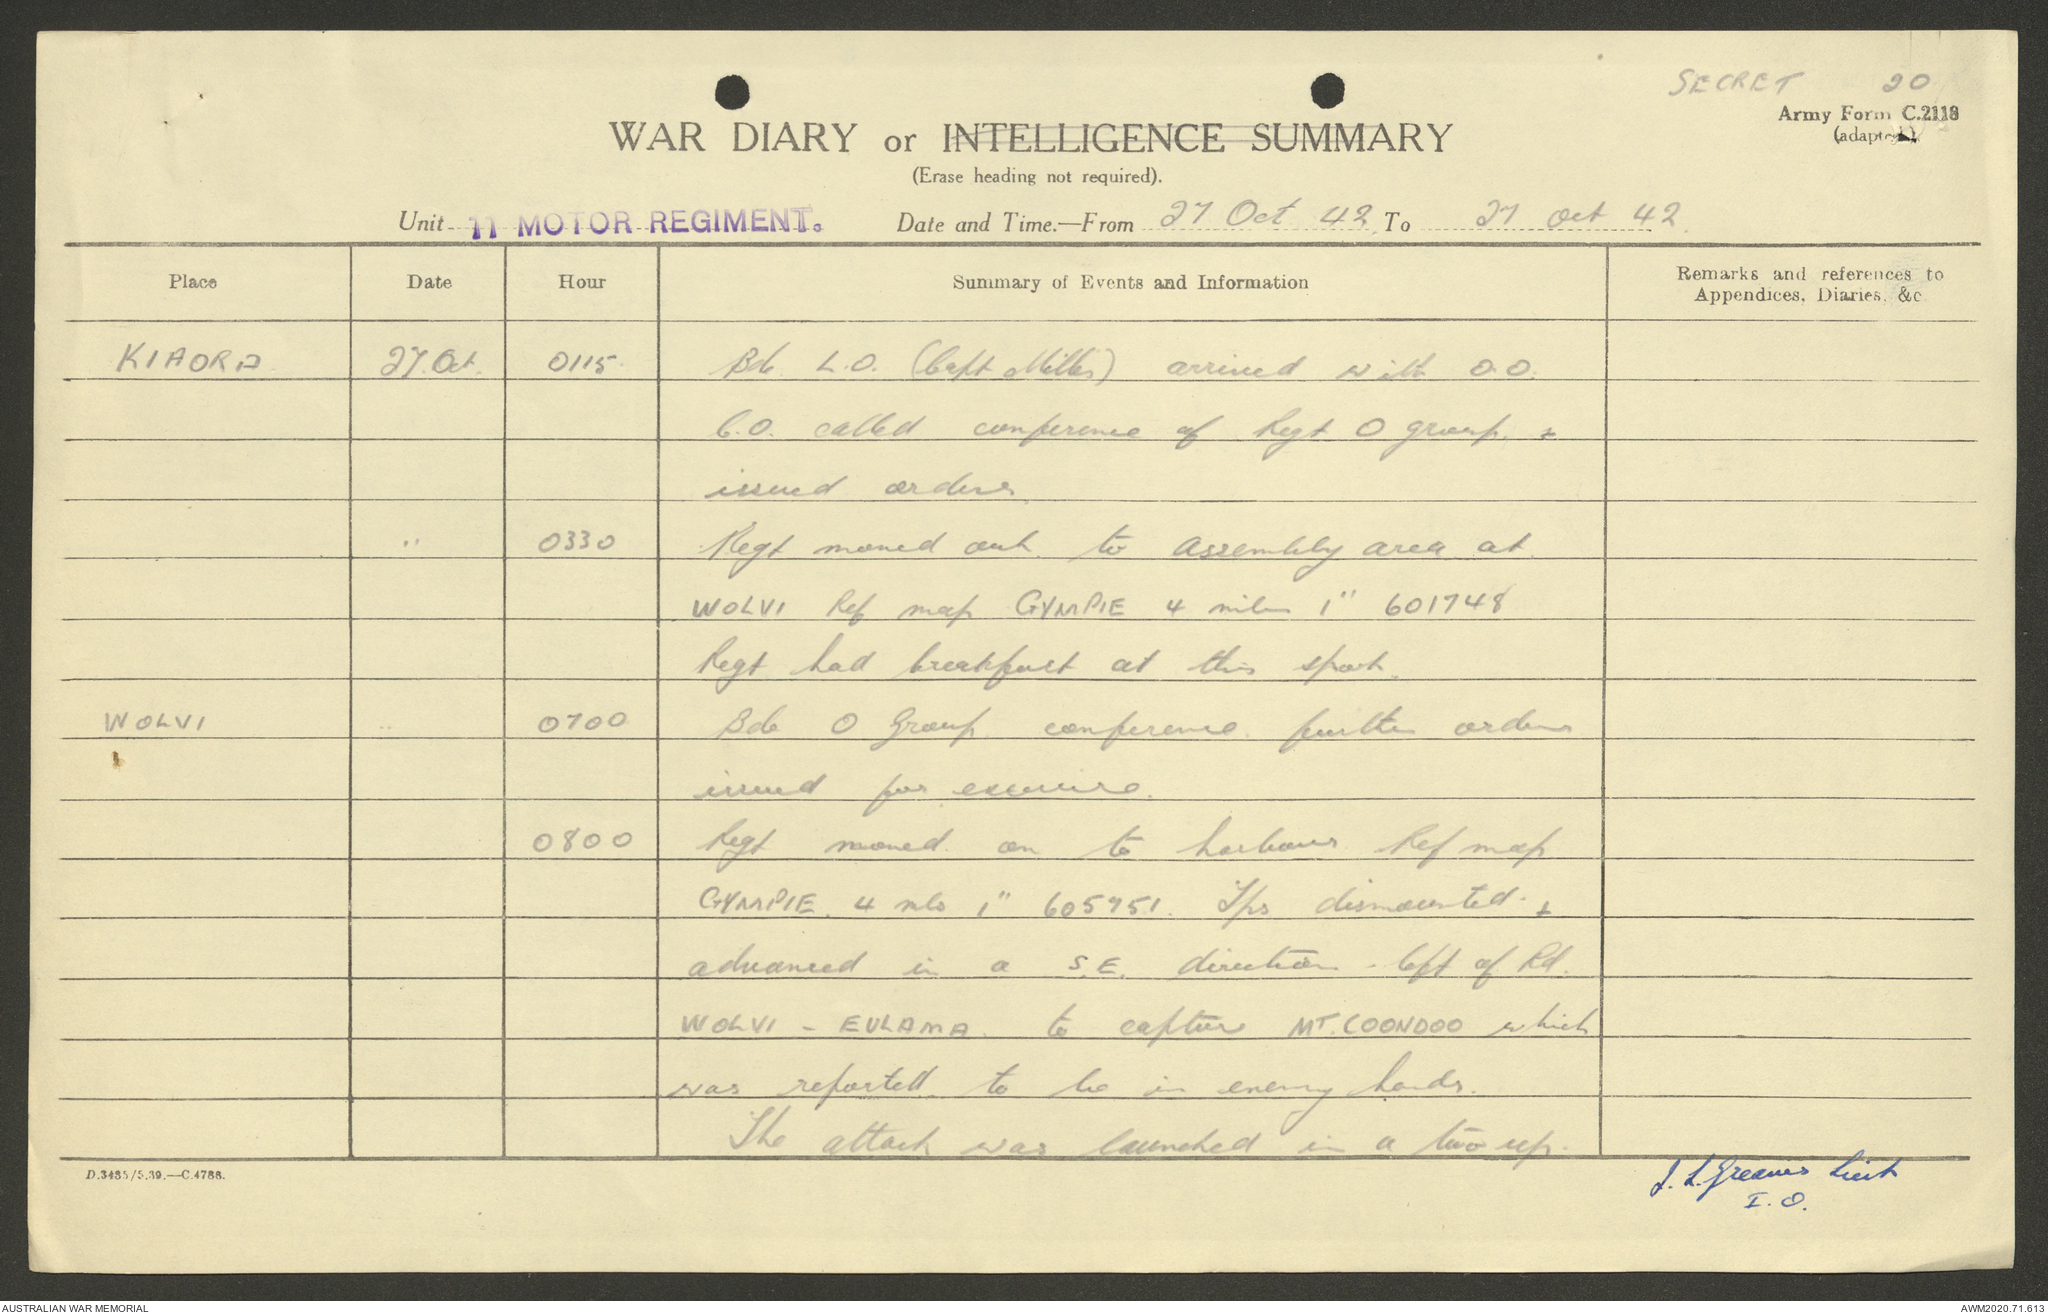 SECRET 20
Army Form C.2118
(adapted)
WAR DIARY or INTELLIGENCE SUMMARY
(Erase heading not required).
Unit 11 MOTOR REGIMENT. Date and Time.—From 27 Oct 42 To 27 Oct 42.
Place Date Hour Summary of Events and Information Remarks and references to
Appendices, Diaries, &c
KIAORA 27.Oct. 0115 Bde L.O. (Capt Miller) arrived with O.O.
C.O. called conference of Regt O group +
issued orders
" 0330 Regt moved out to Assembly area at
WOLVI Ref map GYMPIE 4 miles 1" 601748
Regt had breakfast at this spot.
WOLVI " 0700 Bde O Group conference. further orders
issued for exercise.
0800 Regt moved on to harbour Ref map
GYMPIE 4 mls 1" 605751. Tps dismounted +
advanced in a S.E. direction - left of Rd.
WOLVI - EULAMA to capture MT. COONDOO which
was reported to be in enemy hands.
The attack was launched in a two up
D.3485/5.39.—C.4788.
J. L. Greaves Lieut
I.O.
AUSTRALIAN WAR MEMORIAL AWM2020.71.613